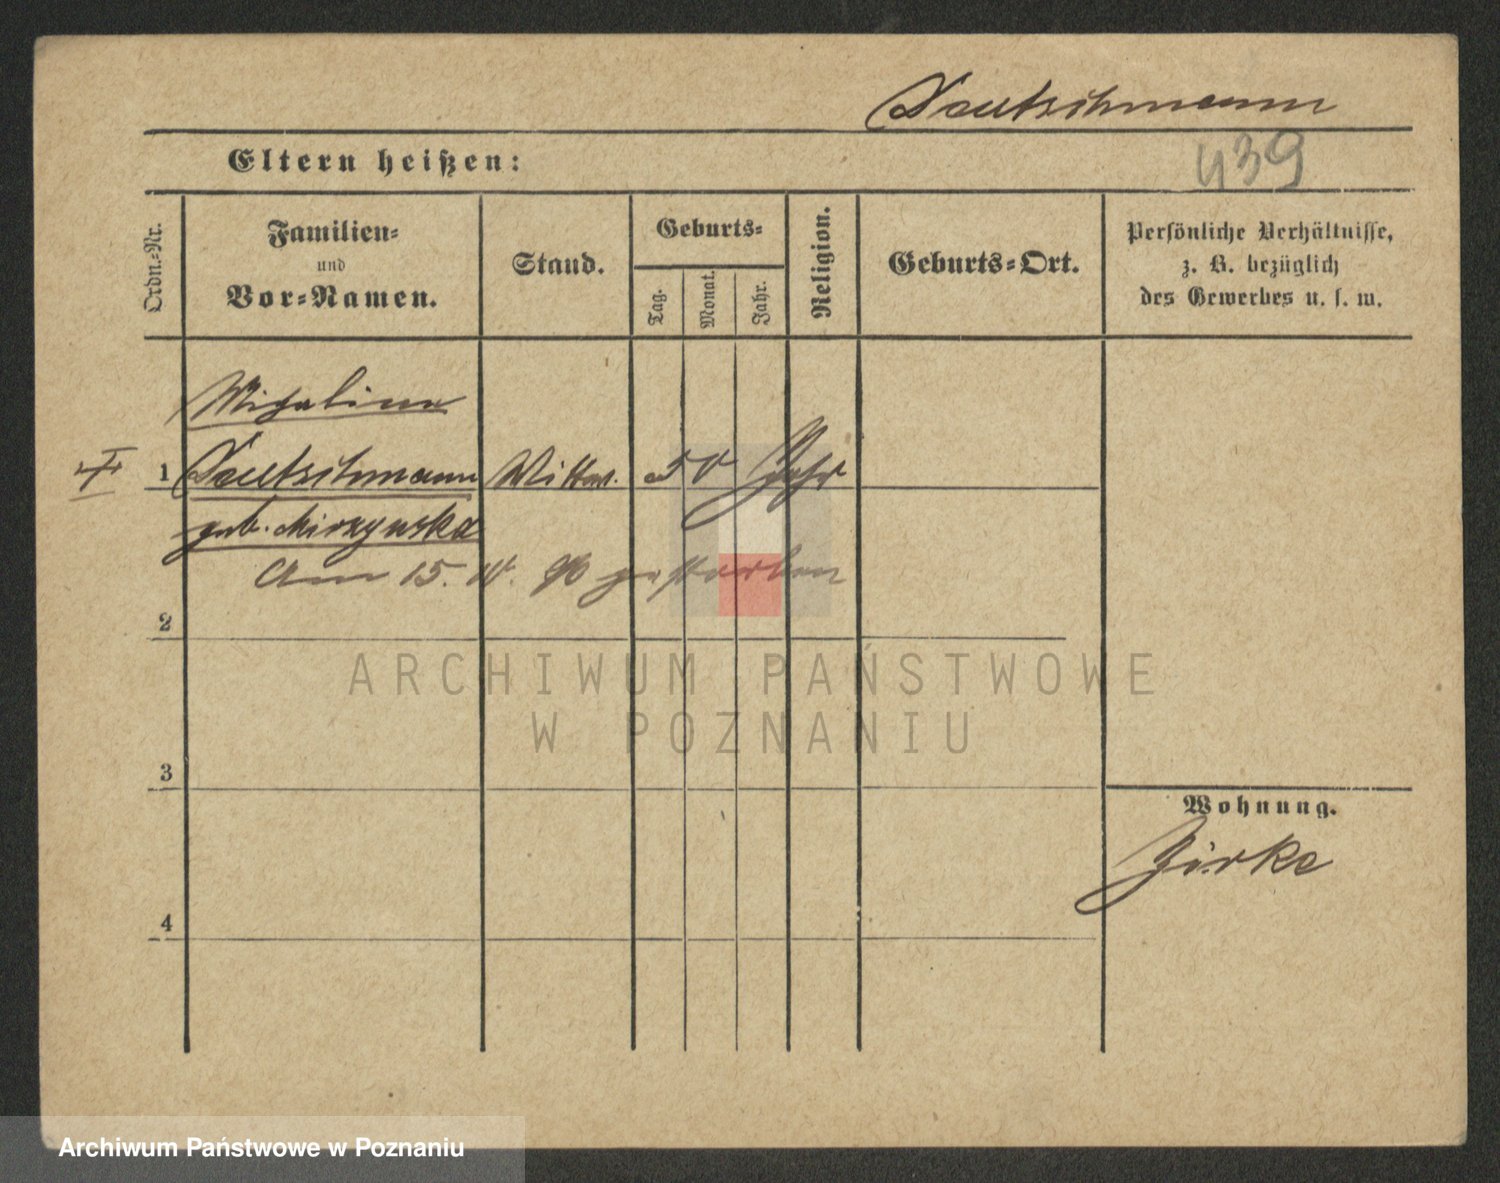 Deutschmann
Eltern heißen:
439
Ordn.=Nr.
Familien=
und
Vor=Namen.
Stand.
Geburts=
Tag.
Monat.
Jahr.
Religion.
Geburts=Ort.
Persönliche Verhältnisse,
z. B. bezüglich
des Gewerbes u. s. w.
Michalina
1 Deutschmann Wittwe. 50 Jahr
geb. Mirzynska
Am 15. IV. 90 gestorben
2
ARCHIWUM PAŃSTWOWE
W POZNANIU
3
Wohnung.
Zirke
4
Archiwum Państwowe w Poznaniu